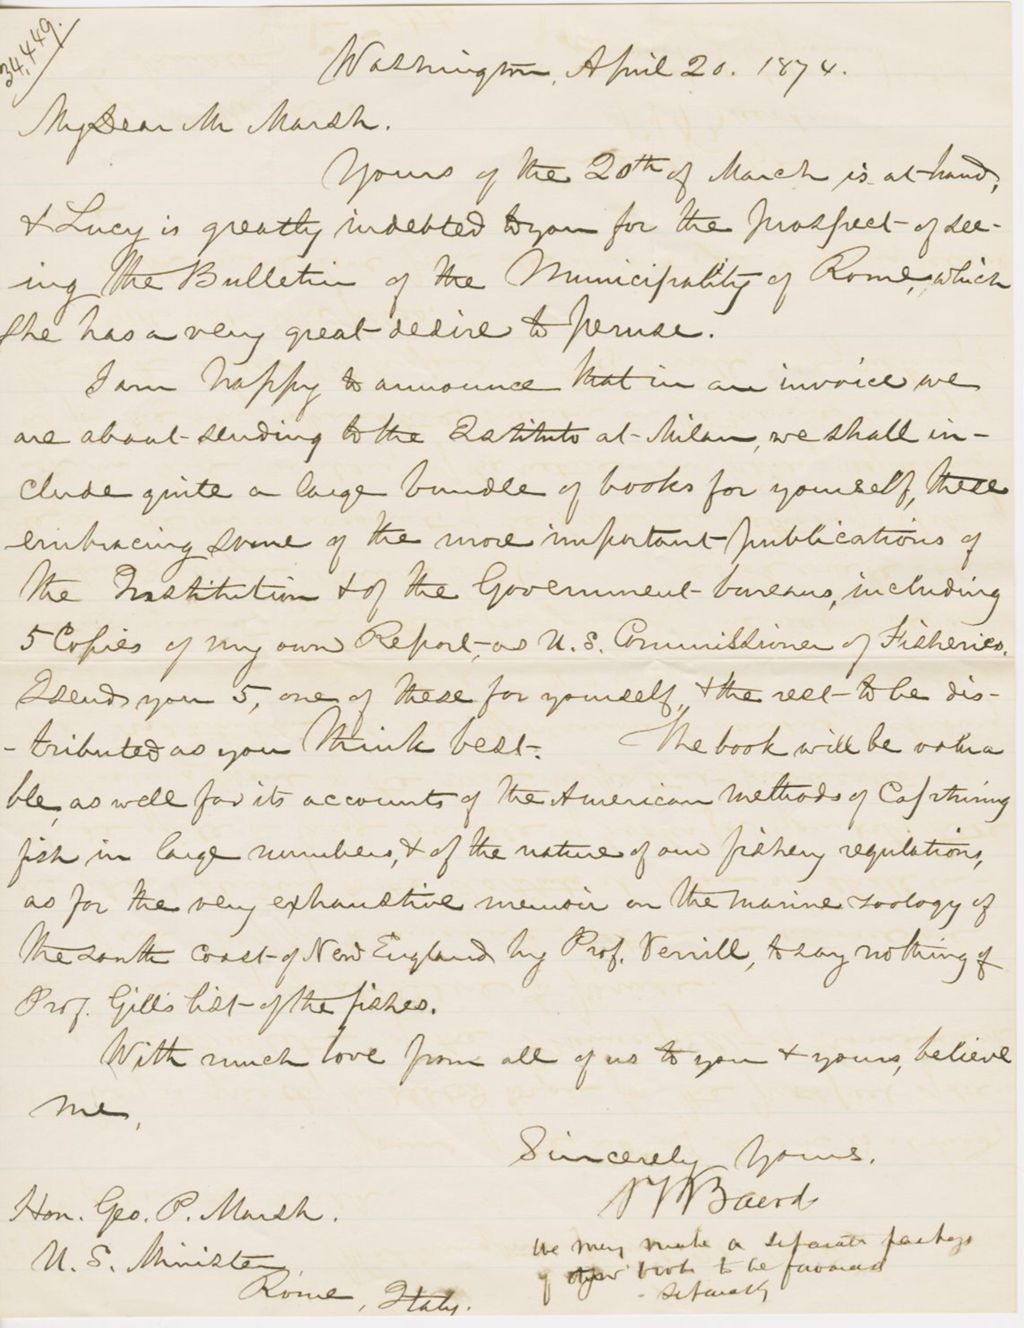 34,449.
Washington, April 20. 1874.
My Dear Mr Marsh.
Yours of the 20th of March is at hand,
& Lucy is greatly indebted to you for the prospect of see-
ing the Bulletin of the Municipality of Rome, which
she has a very great desire to peruse.
I am happy to announce that in an invoice we
are about sending to the Istituto at Milan, we shall in-
clude quite a large bundle of books for yourself, these
embracing some of the more important publications of
the Institution & of the Government bureaus, including
5 Copies of my own Report, as U. S. Commissioner of Fisheries.
I send you 5, one of these for yourself, & the rest to be dis-
-tributed as you think best. The book will be valua
ble, as well for its accounts of the American methods of Capturing
fish in large numbers, & of the nature of our fishery regulations,
as for the very exhaustive memoir on the marine zoology of
the south coast of New England by Prof. Verrill, to say nothing of
Prof. Gill's list of the fishes.
With much love from all of us to you & yours, believe
me,
Sincerely Yours.
S F Baird
Hon. Geo. P. Marsh.
U. S. Minister,
Rome, Italy.
We may make a separate package
of books to be forwarded
separately